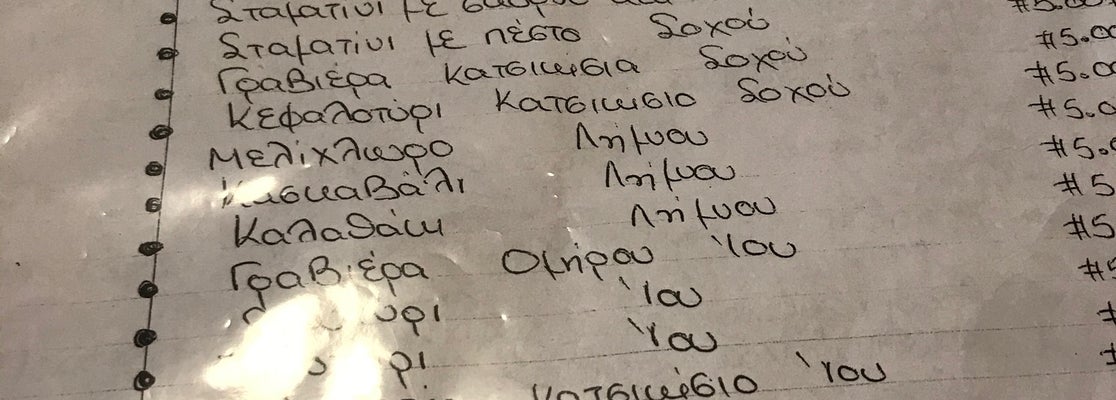 Σταματίνι με
Σταματίνι με πέστο Σοχού #5.00
Γραβιέρα κατσικίσια Σοχού #5.00
Κεφαλοτύρι κατσικίσιο Σοχού #5.0
Μελίχλωρο Λήμνου #5.0
Κασκαβάλι Λήμνου #5
Καλαθάκι Λήμνου #5
Γραβιέρα Ομήρου Ίου #5
Ίου
Ίου
κατσικίσιο Ίου